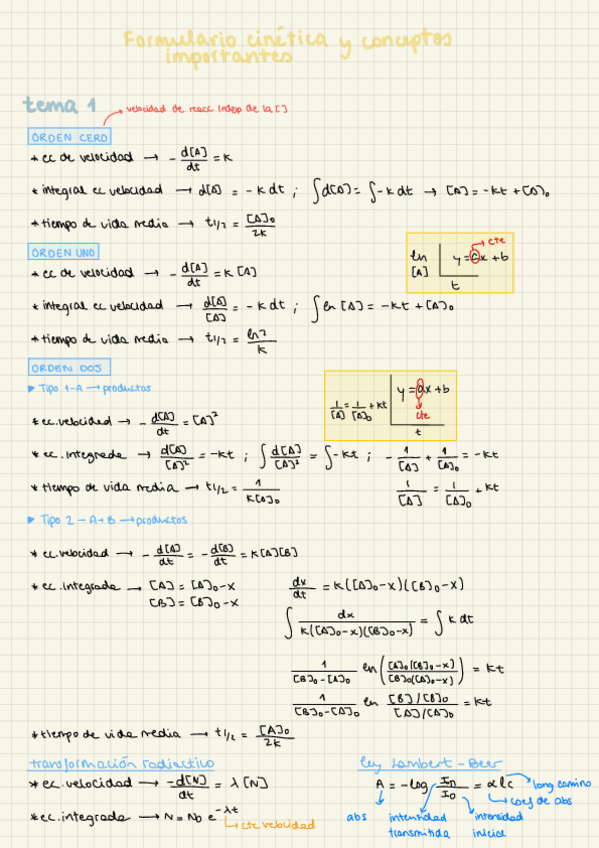 Formulario cinética y conceptos
importantes
tema 1
velocidad de reacc indep de la [ ]
ORDEN CERO
* ec de velocidad → - d[A]/dt = K
* integral ec velocidad → d[A] = -K dt ; ∫d[A] = ∫-K dt → [A] = -Kt + [A]₀
* tiempo de vida media → t1/2 = [A]₀/2K
ORDEN UNO
* ec de velocidad → - d[A]/dt = K [A]
ln [A] y = ax + b cte
t
* integral ec velocidad → d[A]/[A] = -K dt ; ∫ ln [A] = -Kt + [A]₀
* tiempo de vida media → t1/2 = ln2/K
ORDEN DOS
▶ Tipo 1 - A → productos
1/[A] = 1/[A]₀ + kt y = ax + b
cte
t
* ec. velocidad → - d[A]/dt = [A]²
* ec. integrada → d[A]/[A]² = -Kt ; ∫ d[A]/[A]² = ∫-Kt ; - 1/[A] + 1/[A]₀ = -Kt
* tiempo de vida media → t1/2 = 1/K[A]₀ 1/[A] = 1/[A]₀ + Kt
▶ Tipo 2 - A+B → productos
* ec. velocidad → - d[A]/dt = - d[B]/dt = K[A][B]
* ec. integrada → [A] = [A]₀-x dx/dt = K([A]₀-x)([B]₀-x)
[B] = [B]₀-x
∫ dx/K([A]₀-x)([B]₀-x) = ∫ K dt
1/[B]₀-[A]₀ ln ([A]₀([B]₀-x)/[B]₀([A]₀-x)) = Kt
1/[B]₀-[A]₀ ln [B]/[B]₀/[A]/[A]₀ = Kt
* tiempo de vida media → t1/2 = [A]₀/2K
transformación radiactivo
* ec. velocidad → -d[N]/dt = λ [N]
* ec. integrada → N = N₀ e^-λt
cte velocidad
ley Lambert - Beer
A = -log In/I₀ = α l c
long camino
coef de abs
abs
intentidad
transmitida
intensidad
inicial